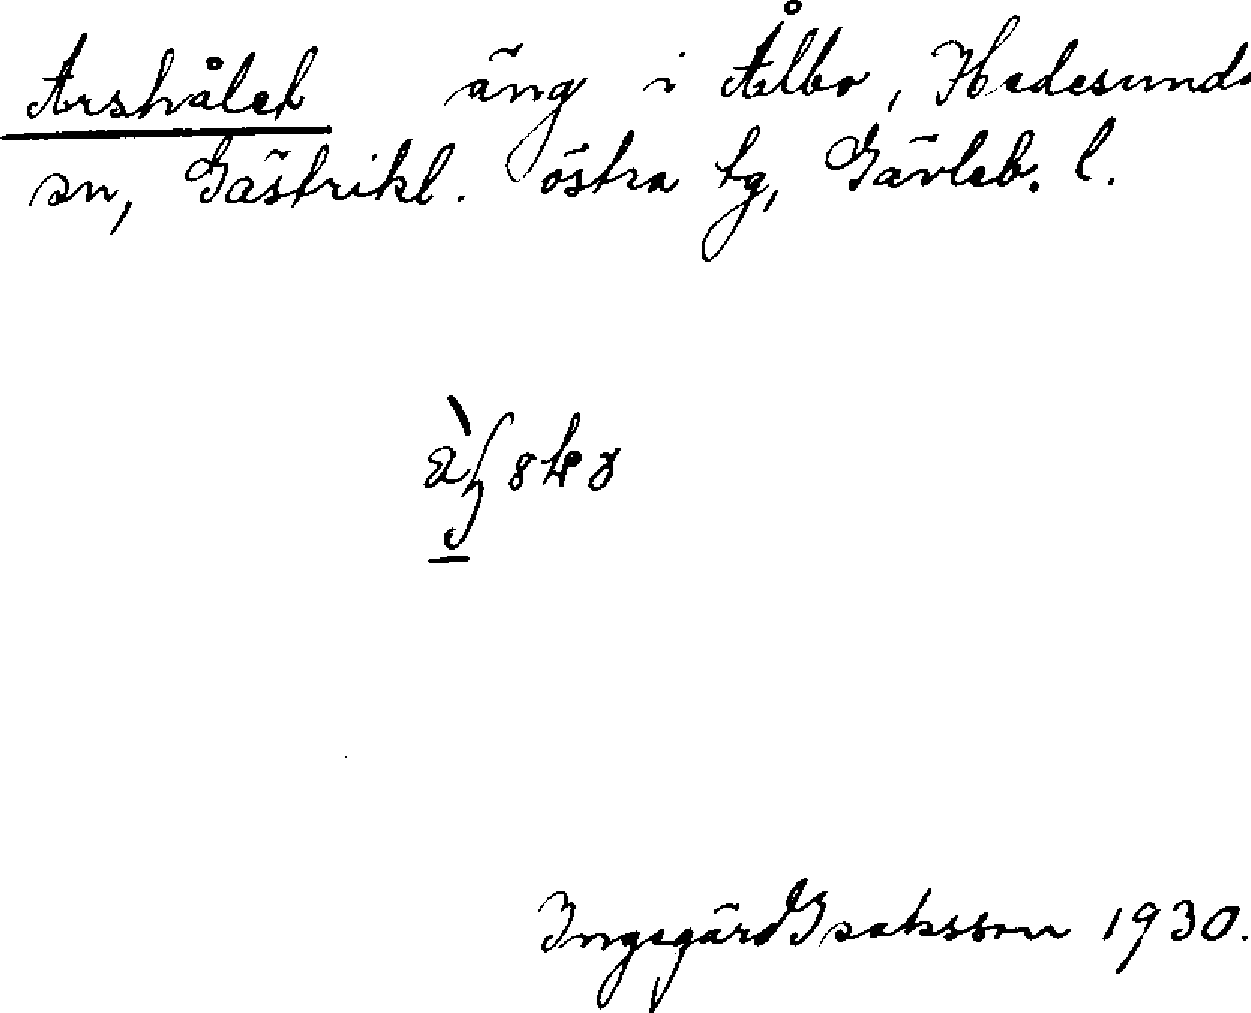 Arshålet äng i Ålbo, Hedesunda
sn, Gästrikl. östra tg, Gävleb. l.
Ingegärd Isaksson 1930.